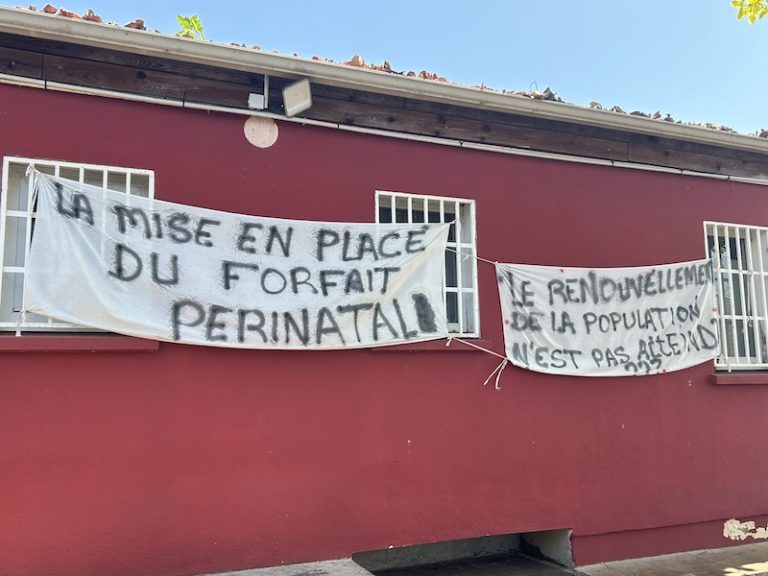 LA MISE EN PLACE
DU FORFAIT
PERINATAL
LE RENOUVELLEMENT
DE LA POPULATION
N'EST PAS ATTEIND
???